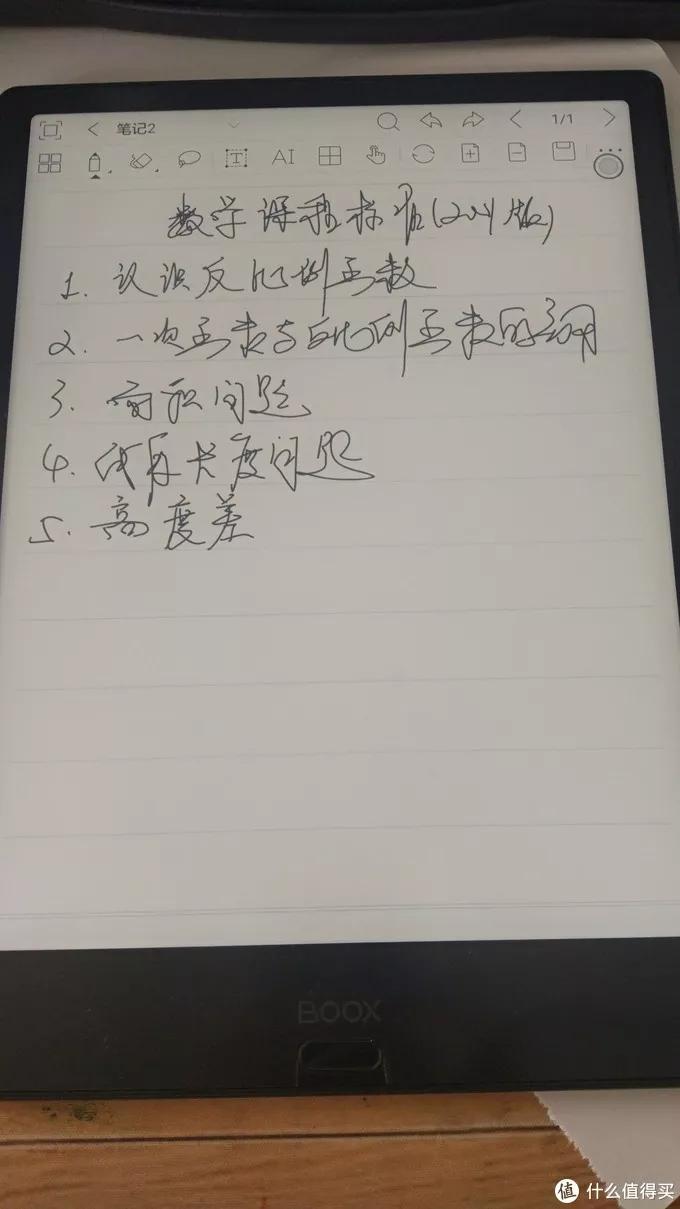 笔记2
1/1
T AI
数学课程标准(2011版)
1. 认识反比例函数
2. 一次函数与反比例函数的
3. 面积问题
4. 线段长度问题
5. 高度差
BOOX
值 什么值得买